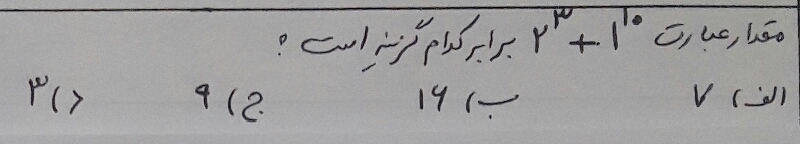 مقدار عبارت ۲³ + ۱¹⁰ برابر کدام گزینه است ؟
الف) ۷ ب) ۱۶ ج) ۹ د) ۳